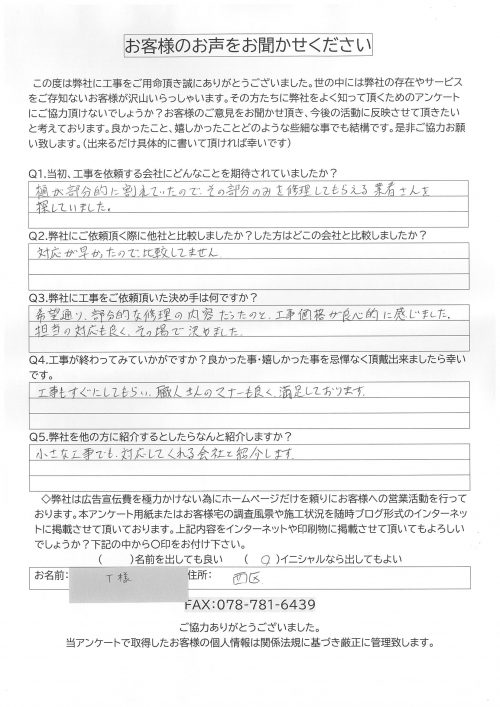 お客様のお声をお聞かせください
この度は弊社に工事をご用命頂き誠にありがとうございました。世の中には弊社の存在やサービス
をご存知ないお客様が沢山いらっしゃいます。その方たちに弊社をよく知って頂くためのアンケート
にご協力頂けないでしょうか?お客様のご意見をお聞かせ頂き、今後の活動に反映させて頂きたい
と考えております。良かったこと、嬉しかったことどのような些細な事でも結構です。是非ご協力お願
い致します。(出来るだけ具体的に書いて頂ければ幸いです)
Q1.当初、工事を依頼する会社にどんなことを期待されていましたか?
樋が部分的に割れていたので、その部分のみを修理してもらえる業者さんを
探していました。
Q2.弊社にご依頼頂く際に他社と比較しましたか?した方はどこの会社と比較しましたか?
対応が早かったので比較してません
Q3.弊社に工事をご依頼頂いた決め手は何ですか?
希望通り、部分的な修理の内容だったのと、工事価格が良心的に感じました。
担当の対応も良く、その場で決めました。
Q4.工事が終わってみていかがですか?良かった事・嬉しかった事を忌憚なく頂戴出来ましたら幸い
です。
工事もすぐにしてもらい、職人さんのマナーも良く、満足しております。
Q5.弊社を他の方に紹介するとしたらなんと紹介しますか?
小さな工事でも、対応してくれる会社と紹介します
◇弊社は広告宣伝費を極力かけない為にホームページだけを頼りにお客様への営業活動を行って
おります。本アンケート用紙またはお客様宅の調査風景や施工状況を随時ブログ形式のインターネッ
トに掲載させて頂いております。上記内容をインターネットや印刷物に掲載させて頂いてもよろしい
でしょうか?下記の中から○印をお付け下さい。
( )名前を出しても良い (○)イニシャルなら出してもよい
お名前: T様 住所: 西区
FAX:078-781-6439
ご協力ありがとうございました。
当アンケートで取得したお客様の個人情報は関係法規に基づき厳正に管理致します。